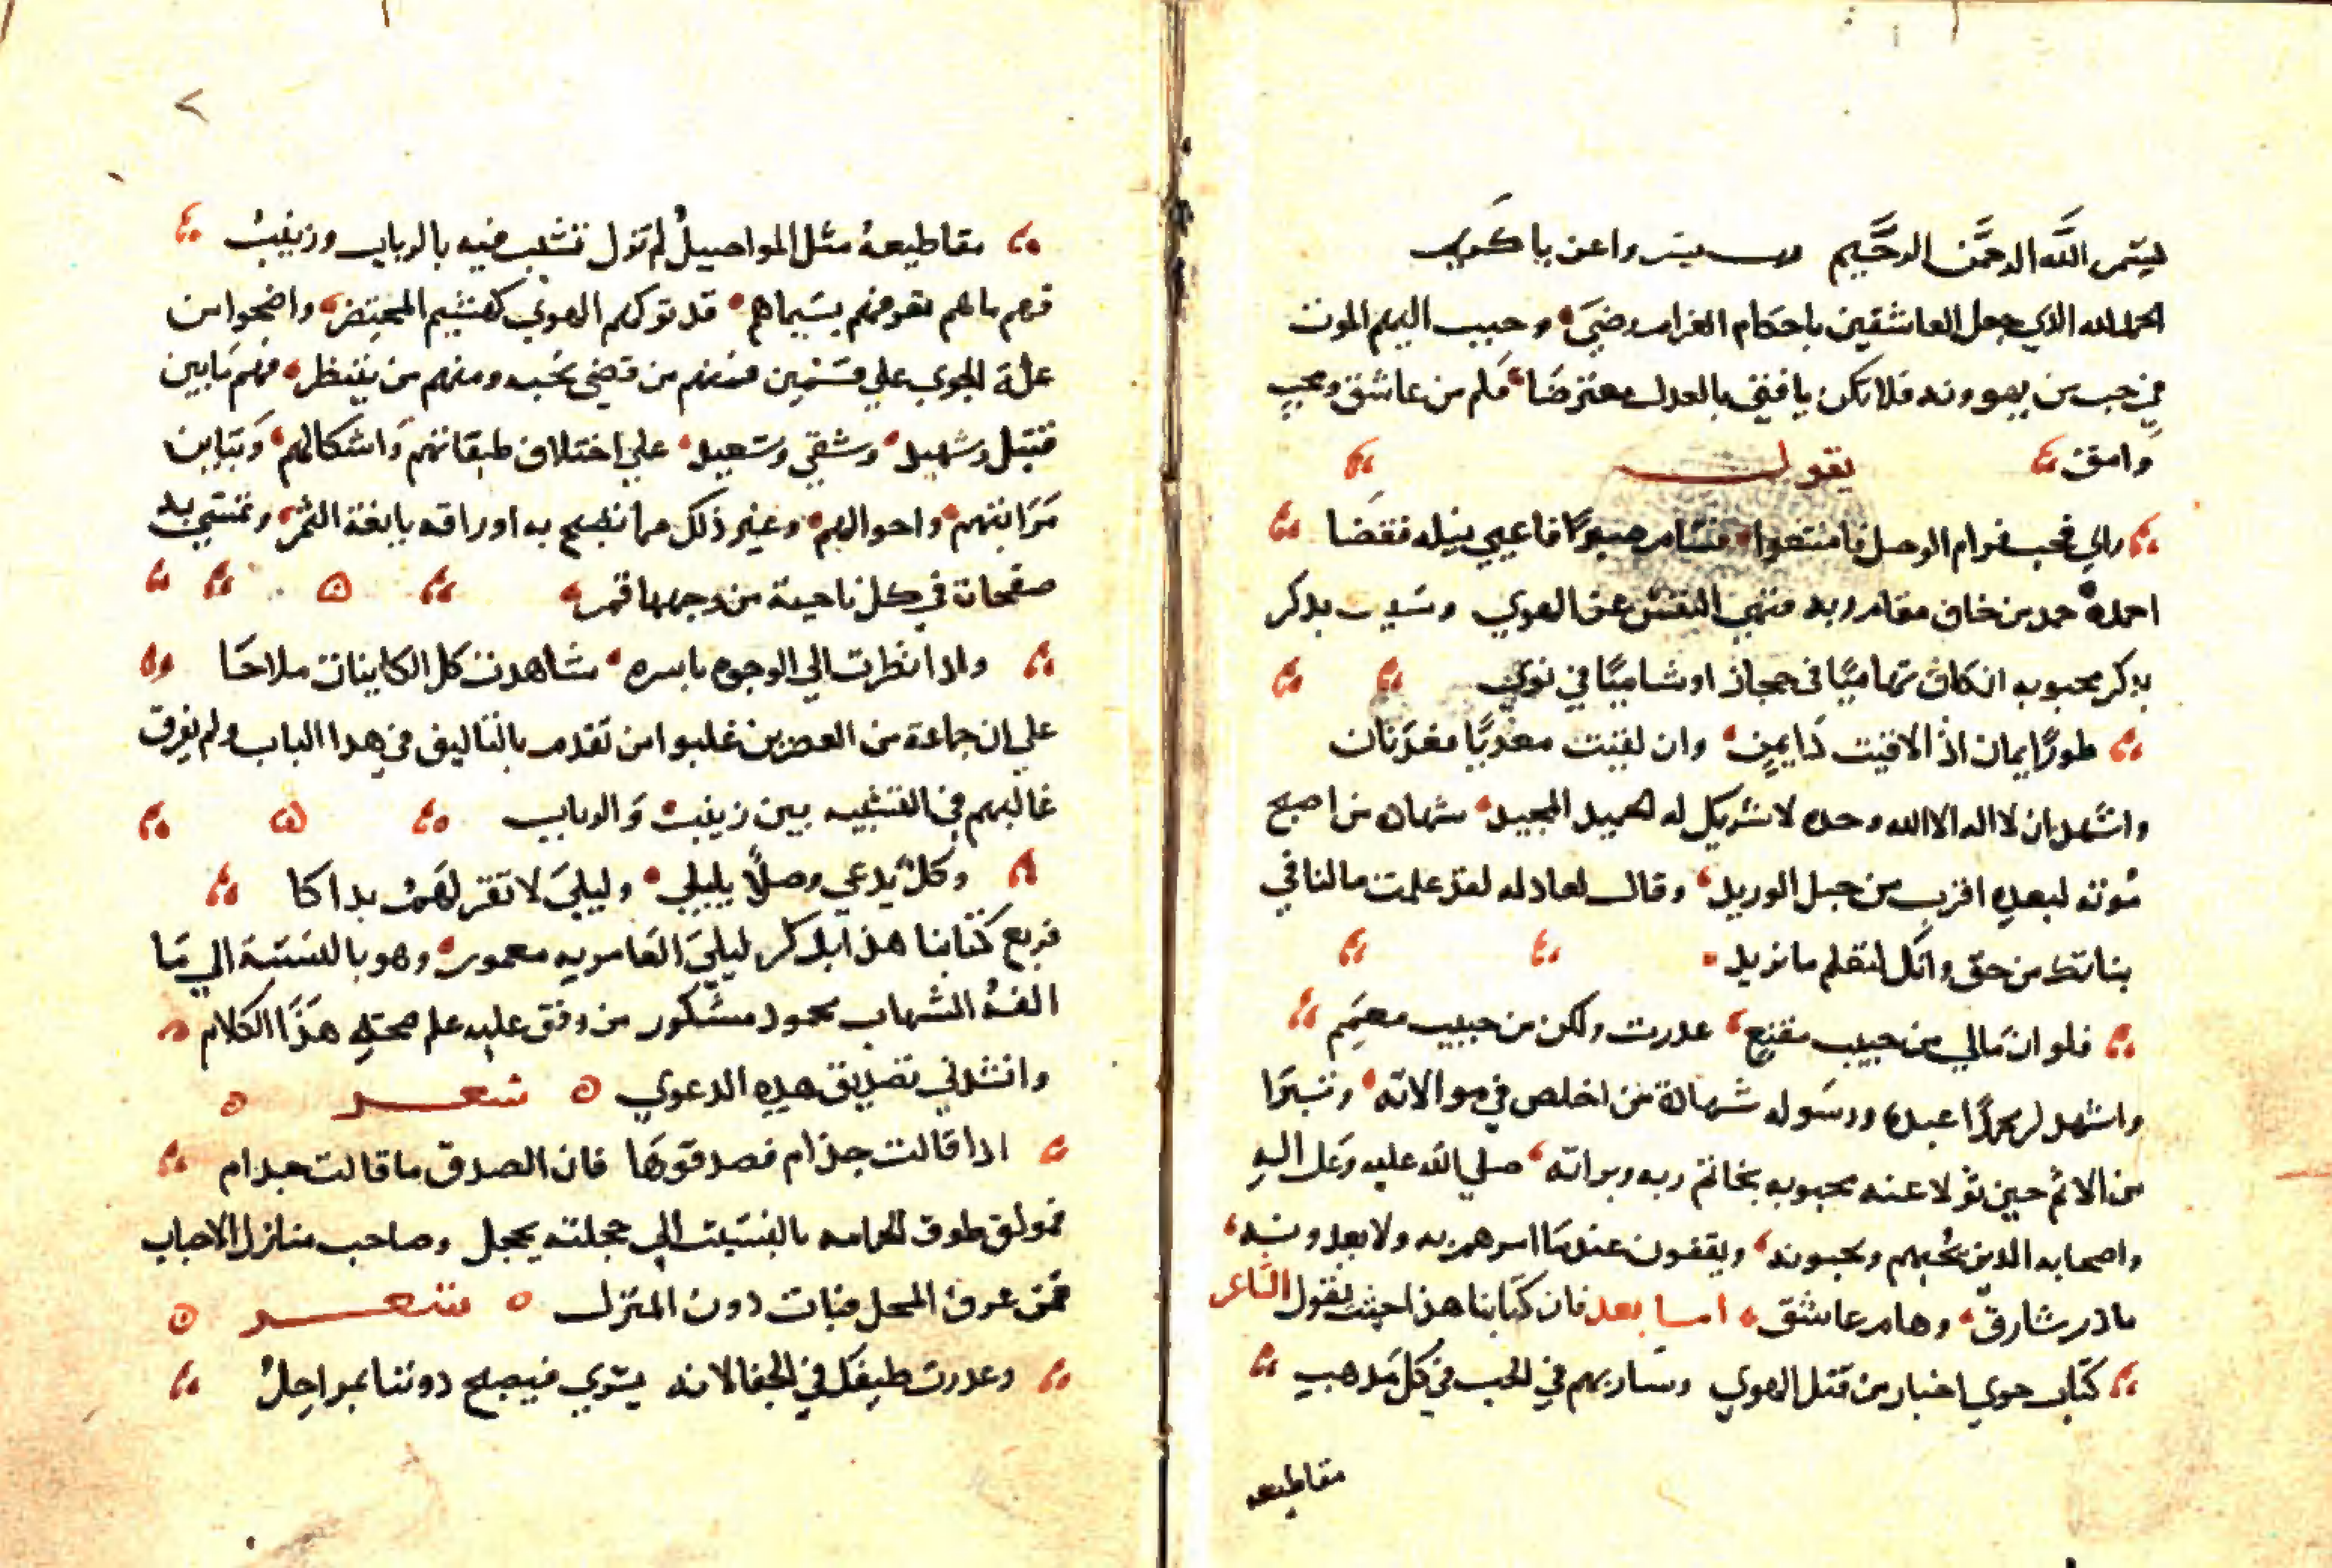 بسم الله الرحمن الرحيم رب يسر واعن يا كريم
الحمد لله الذي جعل العاشقين باحكام الغرام رضي وحبب اليهم الموت
في حب من يهوونه فلا تكن يا فتي بالعدل معترضا فلم من عاشق ومحب
وامق يقول
رالي فحب فرام الوصل فامتنعوا فسام صبرًا فاعيي نيله فقضا
احمده حمد من خاف مقام ربه فنهي النفس عن الهوي وشبب بدكر
بدكر محبوبه ان كان تهاميًا في حجاز او شاميًا في نوي
طورًا يمان اذا لاقيت دايمن وان لقيت معديًا فعدنان
واشهد ان لا اله الا الله وحده لا شريك له الحميد المجيد شهادة من اصبح
موته لبعده اقرب من حبل الوريد وقال لعادله لقد علمت ما لنا في
بناتك من حق وانك لتعلم ما نريد
فلو ان مالي من حبيب مقنع عدرت ولكن من حبيب معمم
واشهد ان محمدًا عبده ورسوله شهادة من اخلص في موالاته وتبرا
من الاثم حين تولا عنه محبوبه بخاتم ربه وبراته صلي الله عليه وعل اله
واصحابه الدين يحبهم ويحبونه ويقفون عند ما امرهم به ولا يعدونه
ما در شارق وهام عاشق اما بعد فان كتابنا هذا حيث يقول الشاعر
كتاب حوي اخبار من قتل الهوي وسار بهم في الحب في كل مدهب
مقاطيعه
مقاطيعه مثل المواصيل لم تزل تشبب فيه بالرباب وزينب
فهم ما لهم تعرفهم بسيماهم قد تركهم الهوي كهشيم المحتضر واضحوا من
علة الجوي علي قسمين فمنهم من قضي نحبه ومنهم من ينتظر فهم ما بين
قتيل وشهيد وشقي وسعيد علي اختلاف طبقاتهم واشكالهم وتباين
مراتبهم واحوالهم وغير ذلك مما تصبح به اوراقه يانعة الثمر وتمتسي به
صفحات في كل ناحية من وجهها قمر
وادا نظرت الي الوجوه باسره شاهدت كل الكاينات ملاحا
علي ان جماعة من العصريين غلبوا من تقدم بالتاليف في هدا الباب ولم يفرق
غالبهم في التشبيه بين زينب والرباب
وكل يدعي وصلًا بليلي وليلي لا تقر لهم بداكا
فربع كتابنا هذا بدكر ليلي العامريه معمور وهو بالنسبة الي ما
الفه الشهاب محمود مشكور من وقف عليه علم صحة هذا الكلام
وانشدني تصديق هده الدعوي شعر
ادا قالت جذام فصدقوها فان الصدق ما قالت جدام
فمولف طوق الحمامه بالنسبت الي حجلته يحجل وصاحب منازل الاحباب
ممن عرف المحل فبات دون المنزل شعر
وعدرت طيفك في الجفا لانه يسري فيصبح دوننا بمراحل